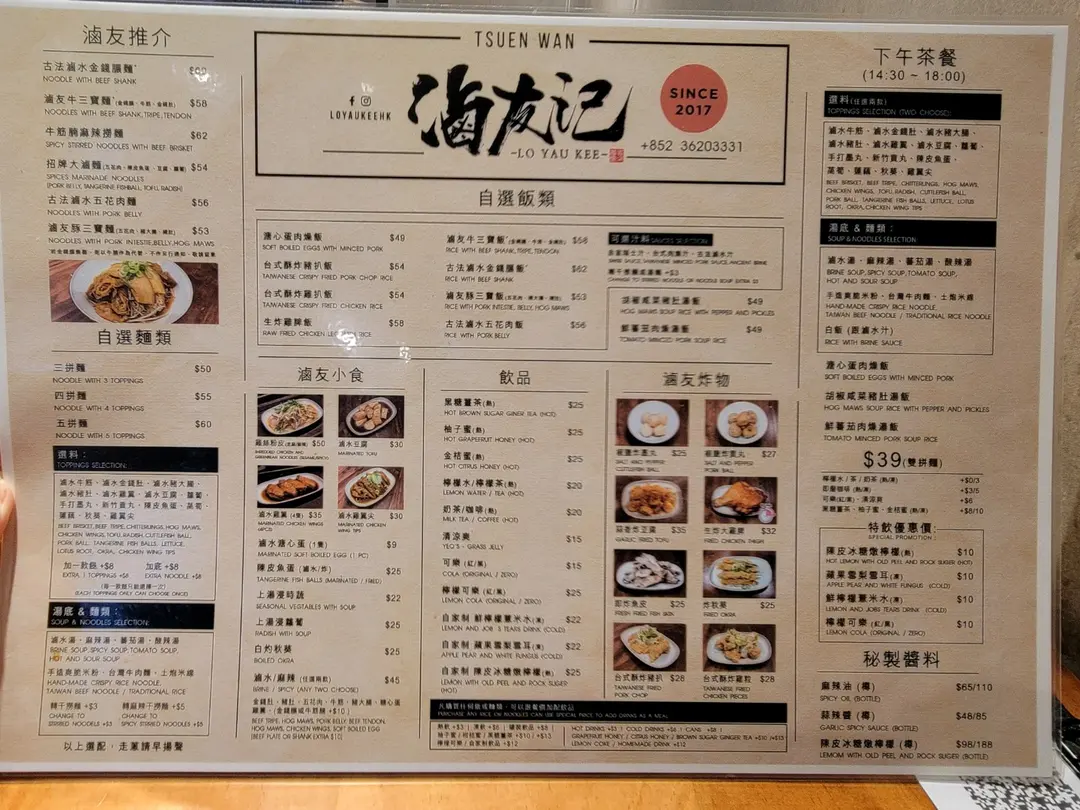 滷友推介
古法滷水金錢𦟌麵*
NOODLE WITH BEEF SHANK
滷友牛三寶麵*(金錢𦟌、牛筋、金錢肚) $58
NOODLES WITH BEEF SHANK, TRIPE, TENDON
牛筋腩麻辣撈麵 $62
SPICY STIRRED NOODLES WITH BEEF BRISKET
招牌大滷麵(五花肉、陳皮魚蛋、豆腐、蘿蔔) $54
SPICES MARINADE NOODLES
(PORK BELLY, TANGERINE FISHBALL, TOFU, RADISH)
古法滷水五花肉麵 $56
NOODLES WITH PORK BELLY
滷友豚三寶麵(五花肉、豬大腸、豬肚) $53
NOODLES WITH PORK INTESTIE, BELLY, HOG MAWS
自選麵類
三拼麵 $50
NOODLE WITH 3 TOPPINGS
四拼麵 $55
NOODLE WITH 4 TOPPINGS
五拼麵 $60
NOODLE WITH 5 TOPPINGS
選料：
TOPPINGS SELECTION:
滷水牛筋、滷水金錢肚、滷水豬大腸、
滷水豬肚、滷水雞翼、滷水豆腐、蘿蔔、
手打墨丸、新竹貢丸、陳皮魚蛋、
蒸菊、蓮藕、秋葵、雞翼尖
BEEF BRISKET, BEEF TRIPE, CHITTERLINGS, HOG MAWS,
CHICKEN WINGS, TOFU, RADISH, CUTTLEFISH BALL,
PORK BALL, TANGERINE FISH BALLS, LETTUCE,
LOTUS ROOT, OKRA, CHICKEN WING TIPS
加一款餸 +$8 加底 +$8
EXTRA 1 TOPPINGS +$8 EXTRA NOODLE +$8
(每一款餸只能選擇一次)
(EACH TOPPINGS ONLY CAN CHOOSE ONCE)
湯底 & 麵類：
SOUP & NOODLES SELECTION:
滷水湯、麻辣湯、蕃茄湯、酸辣湯
BRINE SOUP, SPICY SOUP, TOMATO SOUP,
HOT AND SOUR SOUP
手造爽脆米粉、台灣牛肉麵、土炮米線
HAND-MADE CRISPY RICE NOODLE,
TAIWAN BEEF NOODLE / TRADITIONAL RICE
轉干撈麵 +$3 轉麻辣干撈麵 +$5
CHANGE TO CHANGE TO
STIRRED NOODLES +$3 SPICY STIRRED NOODLES +$5
以上選配，走蔥請早揚聲
TSUEN WAN
LOYAUKEEHK
滷友记
-LO YAU KEE-
SINCE
2017
+852 36203331
自選飯類
溏心蛋肉燥飯 $49
SOFT BOILED EGGS WITH MINCED PORK
台式酥炸豬扒飯 $54
TAIWANESE CRISPY FRIED PORK CHOP RICE
台式酥炸雞扒飯 $54
TAIWANESE CRISPY FRIED CHICKEN RICE
生炸雞脾飯 $58
RAW FRIED CHICKEN LEG RICE
滷友牛三寶飯*(金錢𦟌、牛筋、金錢肚) $58
RICE WITH BEEF SHANK, TRIPE, TENDON
古法滷水金錢𦟌飯* $62
RICE WITH BEEF SHANK
滷友豚三寶飯(五花肉、豬大腸、豬肚) $53
RICE WITH PORK INTESTIE, BELLY, HOG MAWS
古法滷水五花肉飯 $56
RICE WITH PORK BELLY
可選汁料 SAUCES SELECTION
胡椒咸菜豬肚湯飯 $49
HOG MAWS SOUP RICE WITH PEPPER AND PICKLES
鮮蕃茄肉燥湯飯 $49
TOMATO MINCED PORK SOUP RICE
滷友小食
雞絲粉皮 $50
滷水豆腐 $30
MARINATED TOFU
滷水雞翼 (4隻) $35
MARINATED CHICKEN WINGS (4PCS)
滷水雞翼尖 $30
MARINATED CHICKEN WING TIPS
滷水溏心蛋(1隻) $9
MARINATED SOFT BOILED EGG (1 PC)
陳皮魚蛋 (滷水/炸) $25
TANGERINE FISH BALLS (MARINATED / FRIED)
上湯浸時蔬 $22
SEASONAL VEGTABLES WITH SOUP
上湯浸蘿蔔 $25
RADISH WITH SOUP
白灼秋葵 $25
BOILED OKRA
滷水/麻辣 (任選兩款) $45
BRINE / SPICY (ANY TWO CHOOSE)
BEEF TRIPE, HOG MAWS, PORK BELLY, BEEF TENDON,
HOG MAWS, CHICKEN WINGS, SOFT BOILED EGG
飲品
黑糖薑茶(熱) $25
HOT BROWN SUGAR GINER TEA (HOT)
柚子蜜(熱) $25
HOT GRAPEFRUIT HONEY (HOT)
金桔蜜(熱) $25
HOT CITRUS HONEY (HOT)
檸檬水/檸檬茶(熱) $20
LEMON WATER / TEA (HOT)
奶茶/咖啡(熱) $20
MILK TEA / COFFEE (HOT)
清涼爽 $15
YEO'S - GRASS JELLY
可樂(紅/黑) $15
COLA (ORIGINAL / ZERO)
檸檬可樂(紅/黑) $25
LEMON COLA (ORIGINAL / ZERO)
自家制 鮮檸檬薏米水(凍) $22
LEMON AND JOB´S TEARS DRINK (COLD)
自家制 蘋果雪梨雪耳(凍) $22
APPLE PEAR AND WHITE FUNGUS (COLD)
自家制 陳皮冰糖燉檸檬(熱) $25
LEMON WITH OLD PEEL AND ROCK SUGER
(HOT)
滷友炸物
椒鹽炸墨丸 $25
SALT AND PEPPER
CUTTLEFISH BALL
椒鹽炸貢丸 $27
SALT AND PEPPER
PORK BALL
蒜蓉炸豆腐 $35
GARLIC FRIED TOFU
生炸大雞脾 $32
FRIED CHICKEN THIGH
即炸魚皮 $25
FRESH FRIED FISH SKIN
炸秋葵 $25
FRIED OKRA
台式酥炸豬扒 $28
TAIWANESE FRIED
PORK CHOP
台式酥炸雞粒 $28
TAIWANESE FRIED
CHICKEN PIECES
凡購買特飼飯或麵類，可以跟餐價加配飲品
PURCHASE ANY RICE OR NOODLES CAN USE SPECIAL PRICE TO ADD DRINKS AS A MEAL
熱飲 +$3 | 凍飲 +$6 | 罐裝飲品 +$8 |
柚子蜜 / 柑桔蜜 / 黑糖薑茶 +$10 / +$13
檸檬可樂 / 自家制飲品 +$12
HOT DRINKS +$3 | COLD DRINKS +$6 | CANS +$8 |
GRAPEFRUIT HONEY / CITRUS HONEY / BROWN SUGAR GINGER TEA +$10 / +$13
LEMON COKE / HOMEMADE DRINK +$12
下午茶餐
(14:30 ~ 18:00)
選料(任選兩款)
TOPPINGS SELECTION (TWO CHOOSE):
滷水牛筋、滷水金錢肚、滷水豬大腸、
滷水豬肚、滷水雞翼、滷水豆腐、蘿蔔、
手打墨丸、新竹貢丸、陳皮魚蛋、
蒸菊、蓮藕、秋葵、雞翼尖
BEEF BRISKET, BEEF TRIPE, CHITTERLINGS, HOG MAWS,
CHICKEN WINGS, TOFU, RADISH, CUTTLEFISH BALL,
PORK BALL, TANGERINE FISH BALLS, LETTUCE, LOTUS
ROOT, OKRA, CHICKEN WING TIPS
湯底 & 麵類：
SOUP & NOODLES SELECTION
滷水湯、麻辣湯、蕃茄湯、酸辣湯
BRINE SOUP, SPICY SOUP, TOMATO SOUP,
HOT AND SOUR SOUP
手造爽脆米粉、台灣牛肉麵、土炮米線
HAND-MADE CRISPY RICE NOODLE,
TAIWAN BEEF NOODLE / TRADITIONAL RICE NOODLE
白飯 (跟滷水汁)
RICE WITH BRINE SAUCE
溏心蛋肉燥飯
SOFT BOILED EGGS WITH MINCED PORK
胡椒咸菜豬肚湯飯
HOG MAWS SOUP RICE WITH PEPPER AND PICKLES
鮮蕃茄肉燥湯飯
TOMATO MINCED PORK SOUP RICE
$39(雙拼麵)
檸檬水 / 茶 / 奶茶 (熱/凍) +$0/3
即磨咖啡 (熱/凍) +$3/5
可樂(紅/黑)、清涼爽 +$6
黑糖薑茶、柚子蜜、金桔蜜 (熱/凍) +$8/10
特飲優惠價：
SPECIAL PROMOTION：
陳皮冰糖燉檸檬(熱) $10
HOT LEMON WITH OLD PEEL AND ROCK SUGER
蘋果雪梨雪耳(凍) $10
APPLE PEAR AND WHITE FUNGUS (COLD)
鮮檸檬薏米水(凍) $10
LEMON AND JOB´S TEARS DRINK (COLD)
檸檬可樂(紅/黑) $10
LEMON COLA (ORIGINAL / ZERO)
秘製醬料
麻辣油 (樽) $65/110
SPICY OIL (BOTTLE)
蒜辣醬 (樽) $48/85
GARLIC SPICY SAUCE (BOTTLE)
陳皮冰糖燉檸檬 (樽) $98/188
LEMOM WITH OLD PEEL AND ROCK SUGER (BOTTLE)